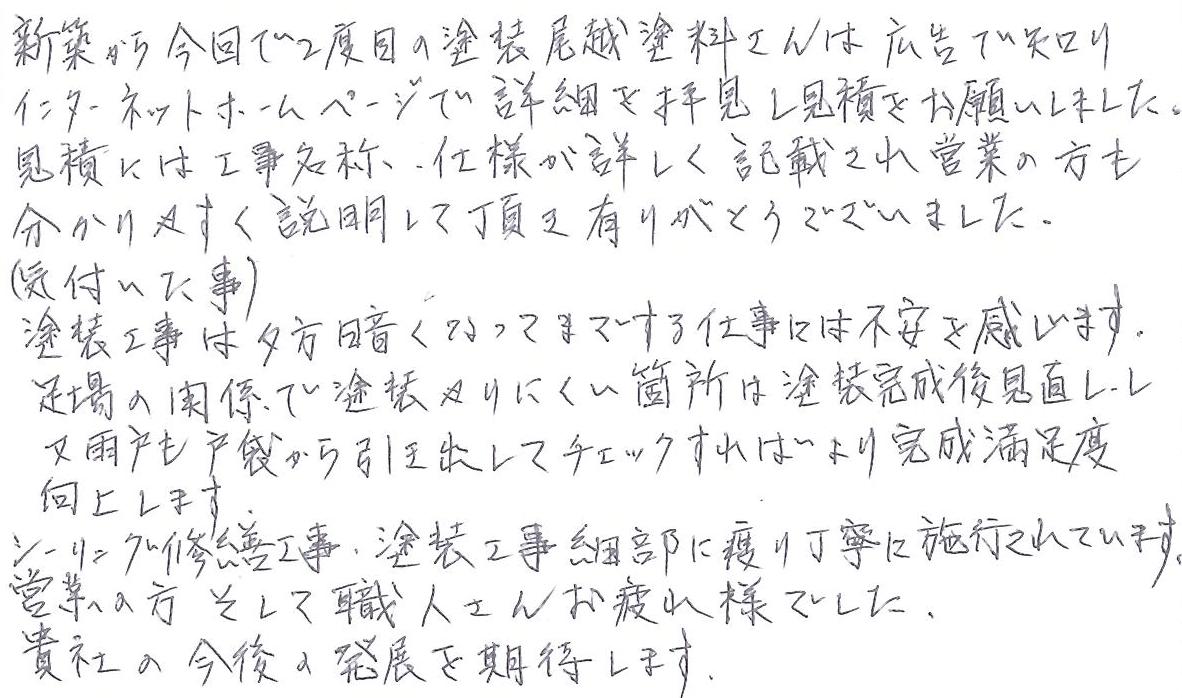 新築から今回で2度目の塗装尾越塗料さんは広告で知り
インターネットホームページで詳細を拝見し見積をお願いしました。
見積には工事名称、仕様が詳しく記載され営業の方も
分かりやすく説明して頂き有りがとうございました。
(気付いた事)
塗装工事は夕方暗くなってまでする仕事には不安を感じます。
足場の関係で塗装やりにくい箇所は塗装完成後見直しし
又雨戸も戸袋から引き出してチェックすればより完成満足度
向上します
シーリング修繕工事、塗装工事細部に渡り丁寧に施行されています。
営業の方そして職人さんお疲れ様でした。
貴社の今後の発展を期待します。